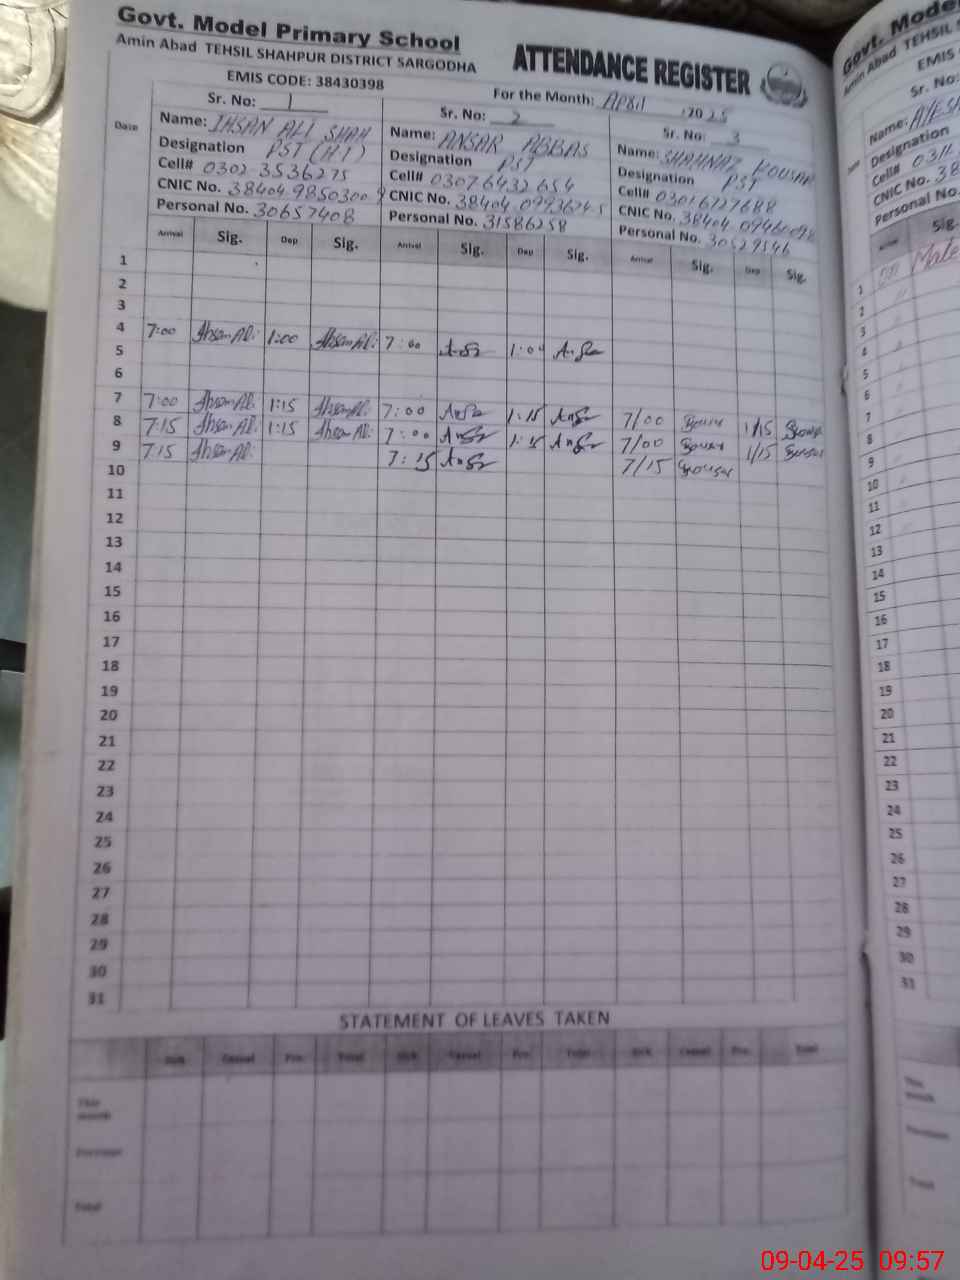 Govt. Model Primary School
Amin Abad TEHSIL SHAHPUR DISTRICT SARGODHA
EMIS CODE: 38430398
ATTENDANCE REGISTER
For the Month: April /2025
Date
Sr. No: 1
Name: IHSAN ALI SHAH
Designation PST (HT)
Cell# 0302 3536275
CNIC No. 38404 9850300 9
Personal No. 30657408
Sr. No: 2
Name: ANSAR ABBAS
Designation PST
Cell# 03076432654
CNIC No. 38404
Personal No. 31586258
Sr. No: 3
Name: SHAHNAZ KOUSAR
Designation PST
Cell# 03016727688
CNIC No. 38404
Personal No. 30529546
Arrival Sig. Dep Sig. Arrival Sig. Dep Sig. Arrival Sig. Dep Sig.
1
2
3
4 7:00 Ahsan Ali 1:00 Ahsan Ali 7:00 1:00
5
6
7 7:00 Ahsan Ali 1:15 Ahsan Ali 7:00 1:15 7/00 1/15
8 7:15 Ahsan Ali 1:15 Ahsan Ali 7:00 1:15 7/00 1/15
9 7:15 Ahsan Ali 7:15 7/15
10
11
12
13
14
15
16
17
18
19
20
21
22
23
24
25
26
27
28
29
30
31
STATEMENT OF LEAVES TAKEN
Sick Casual Prv. Total Sick Casual Prv. Total Sick Casual Prv. Total
This month
Previous
Total
Govt. Mode
Amin Abad TEHSIL S
EMIS
Sr. No:
Name: AYESH
Designation
Cell# 0311
CNIC No. 38
Personal No.
Arrival Sig.
1
2
3
4
5
6
7
8
9
10
11
12
13
14
15
16
17
18
19
20
21
22
23
24
25
26
27
28
29
30
31
This month
Previous
Total
09-04-25 09:57